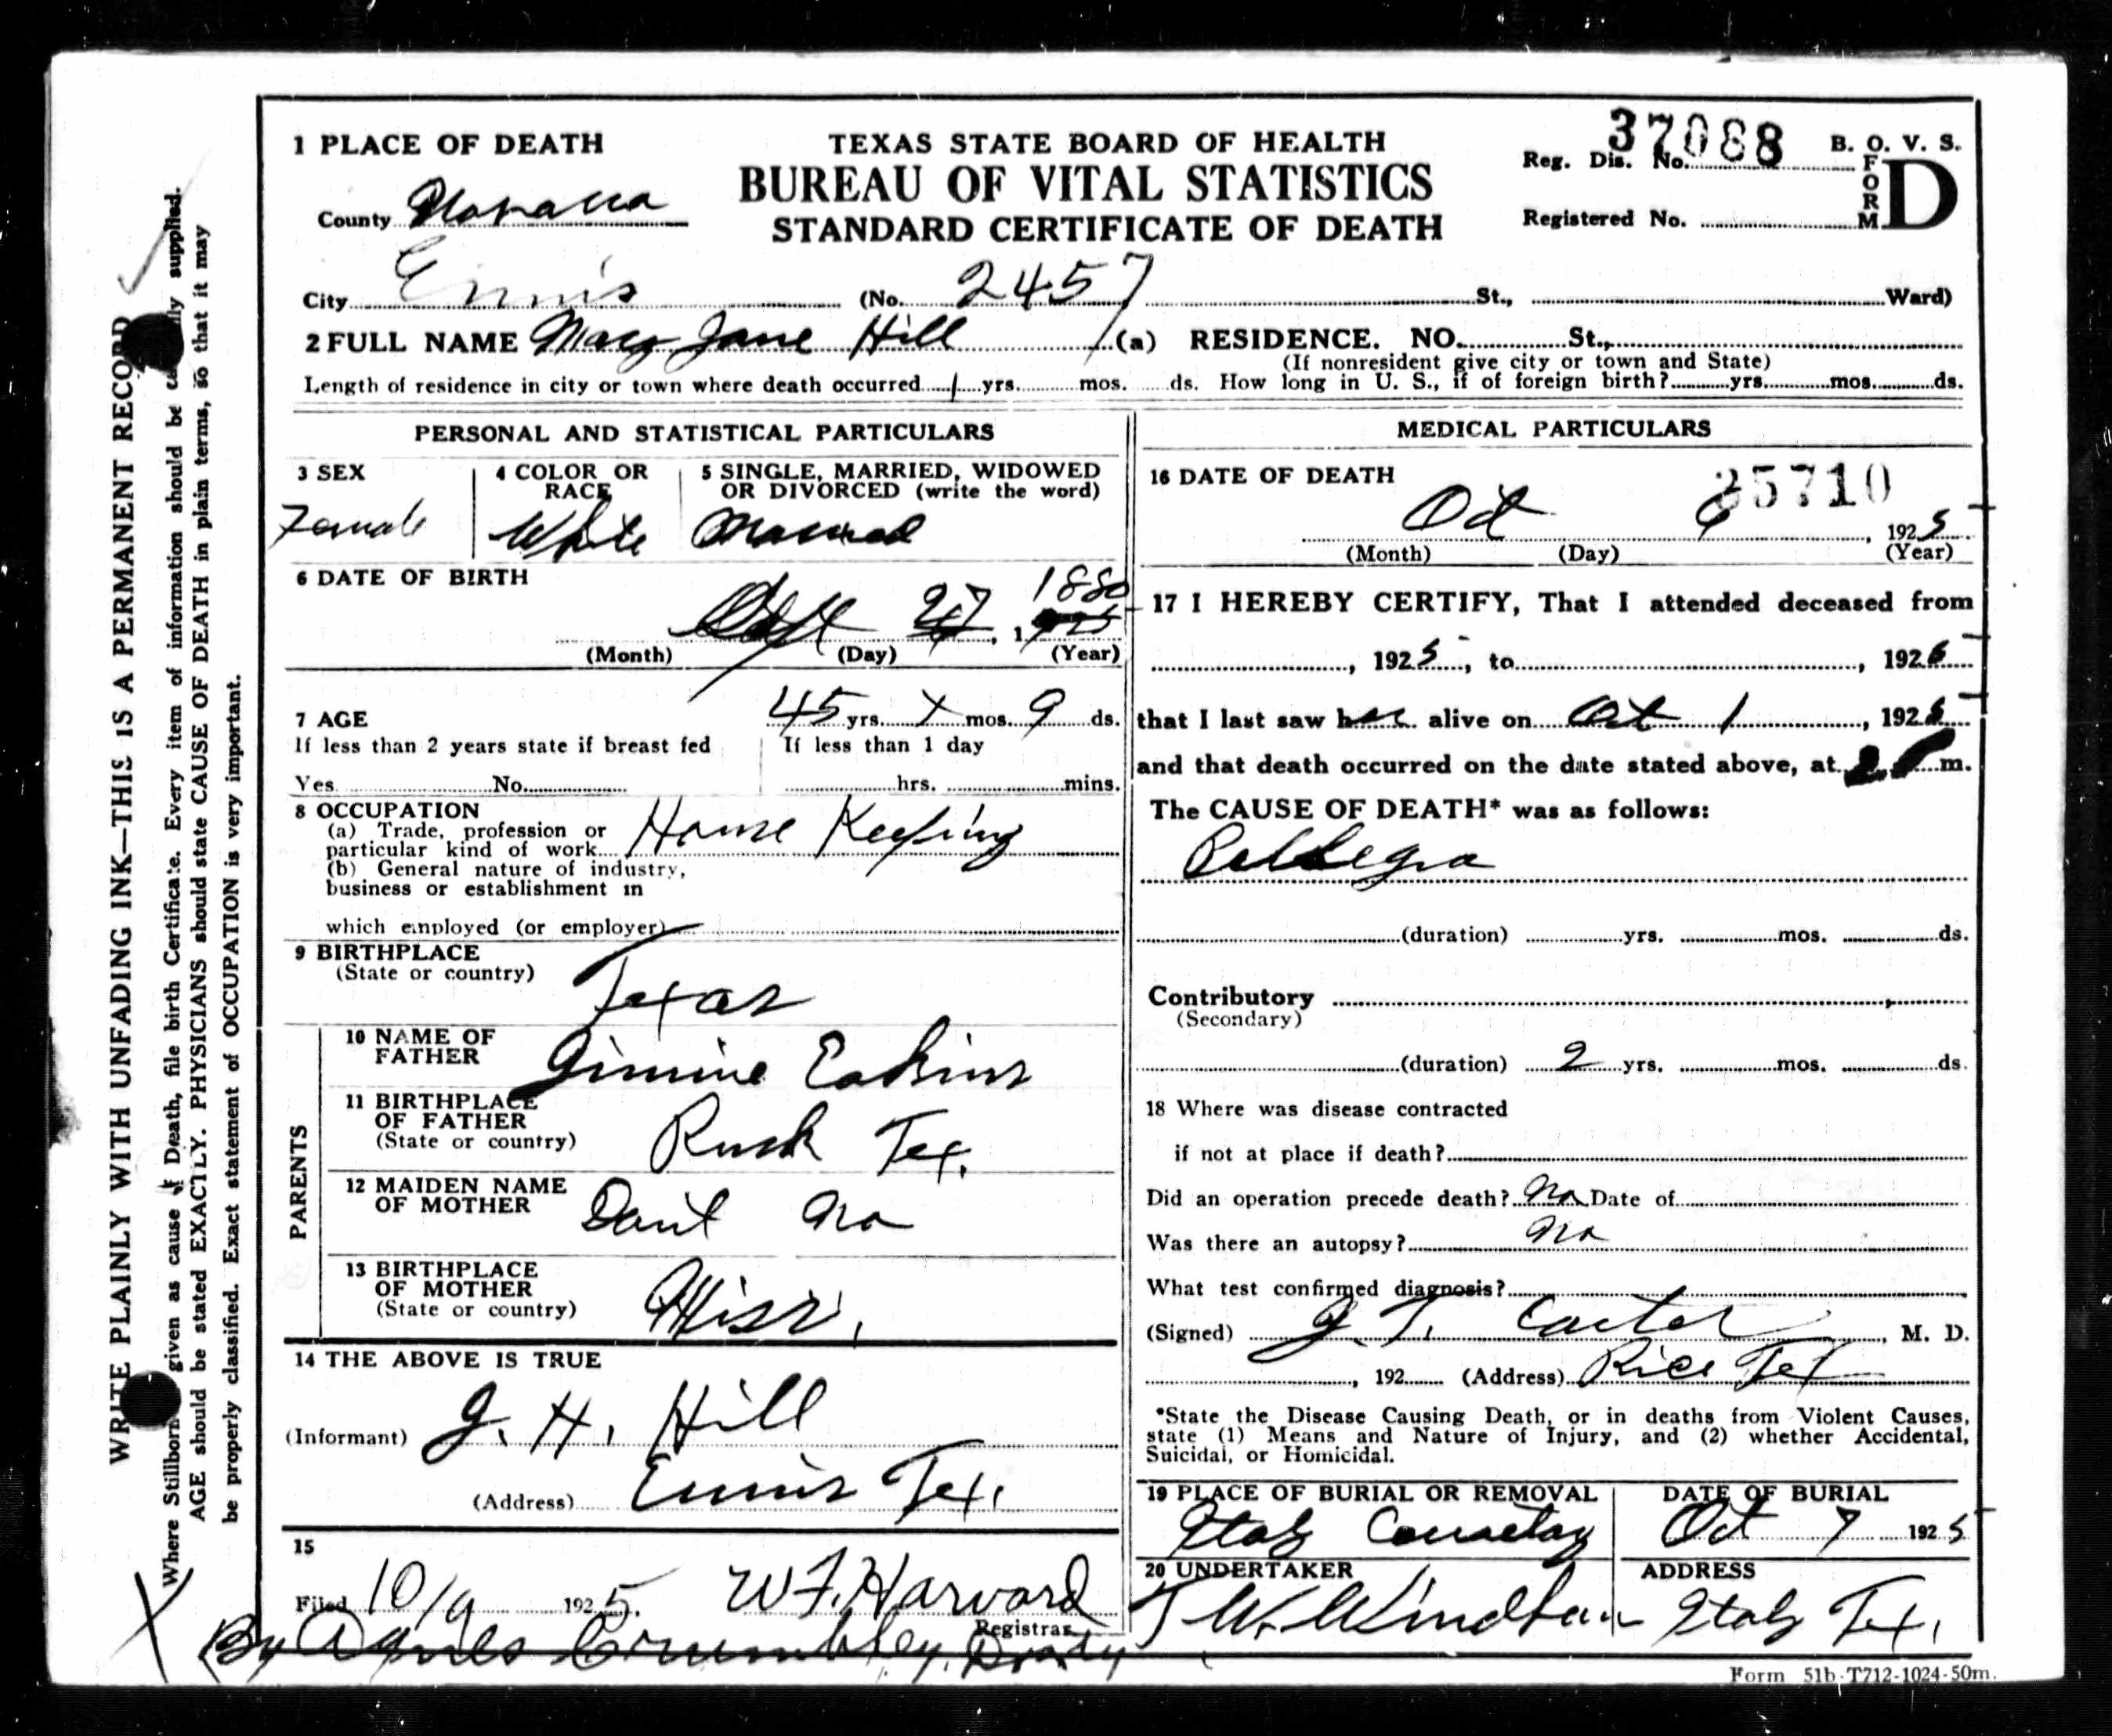 1 PLACE OF DEATH
TEXAS STATE BOARD OF HEALTH
BUREAU OF VITAL STATISTICS
STANDARD CERTIFICATE OF DEATH
37088
Reg. Dis. No.
B. O. V. S.
FORM D
Registered No.
County
City Ennis (No. 2457 St., Ward)
2 FULL NAME Mary Jane Hill (a) RESIDENCE. NO. St.,
(If nonresident give city or town and State)
Length of residence in city or town where death occurred 1 yrs. mos. ds. How long in U. S., if of foreign birth? yrs. mos. ds.
PERSONAL AND STATISTICAL PARTICULARS
3 SEX
Female
4 COLOR OR RACE
White
5 SINGLE, MARRIED, WIDOWED
OR DIVORCED (write the word)
Married
6 DATE OF BIRTH
Sept 27 1880
(Month) (Day) (Year)
7 AGE 45 yrs. X mos. 9 ds.
If less than 2 years state if breast fed
If less than 1 day
Yes No
hrs. mins.
8 OCCUPATION
(a) Trade, profession or
particular kind of work House Keeping
(b) General nature of industry,
business or establishment in
which employed (or employer)
9 BIRTHPLACE
(State or country) Texas
PARENTS
10 NAME OF
FATHER Jimmie Eakins
11 BIRTHPLACE
OF FATHER
(State or country) Rusk Tex.
12 MAIDEN NAME
OF MOTHER Dont no
13 BIRTHPLACE
OF MOTHER
(State or country) Miss.
14 THE ABOVE IS TRUE
(Informant) J. H. Hill
(Address) Ennis Tex.
15
Filed 10/9 1925. W F. Harvard
Registrar
By Agnes Crumbley,
MEDICAL PARTICULARS
16 DATE OF DEATH
35710
Oct 6, 1925
(Month) (Day) (Year)
17 I HEREBY CERTIFY, That I attended deceased from
, 1925, to , 1925
that I last saw her alive on Oct 1, 1925
and that death occurred on the date stated above, at m.
The CAUSE OF DEATH* was as follows:
Pellegra
(duration) yrs. mos. ds.
Contributory
(Secondary)
(duration) 2 yrs. mos. ds.
18 Where was disease contracted
if not at place if death?
Did an operation precede death? no Date of
Was there an autopsy? no
What test confirmed diagnosis?
(Signed) J. T. Carter, M. D.
, 192 (Address) Rice Tex
*State the Disease Causing Death, or in deaths from Violent Causes,
state (1) Means and Nature of Injury, and (2) whether Accidental,
Suicidal, or Homicidal.
19 PLACE OF BURIAL OR REMOVAL
Italy Cemetary
DATE OF BURIAL
Oct 7 1925
20 UNDERTAKER
ADDRESS
Italy Tex.
Form 51b-T712-1024-50m.
WRITE PLAINLY WITH UNFADING INK—THIS IS A PERMANENT RECORD
Where Stillborn given as cause of Death, file birth Certificate. Every item of information should be carefully supplied.
AGE should be stated EXACTLY. PHYSICIANS should state CAUSE OF DEATH in plain terms, so that it may
be properly classified. Exact statement of OCCUPATION is very important.